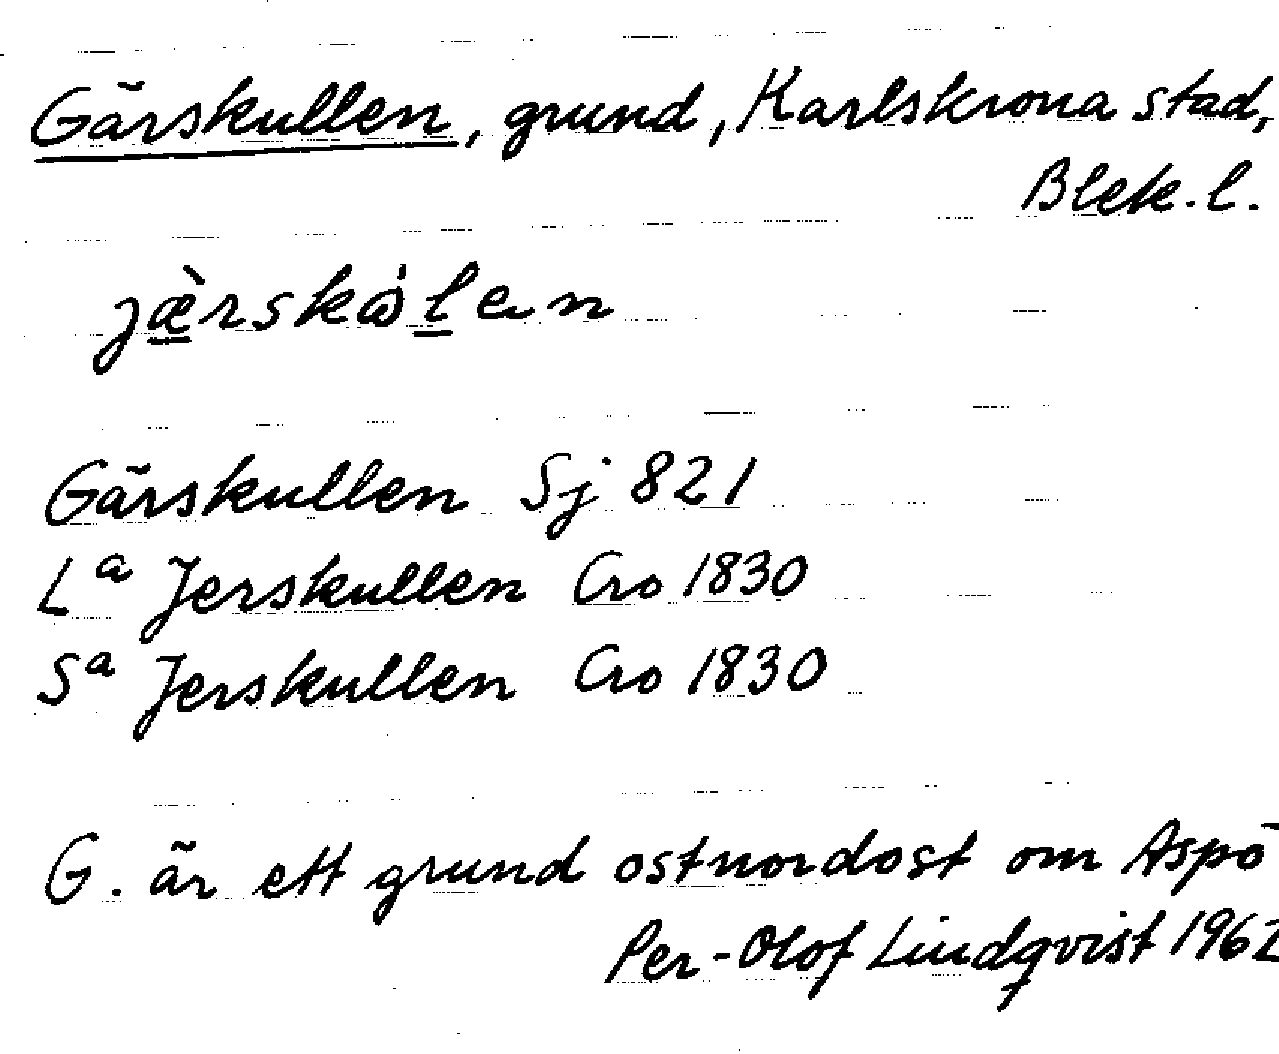 Gärskullen, grund, Karlskrona stad,
Blek. l.
jæ̀rskålen
Gärskullen Sj 821
Lᵃ Jerskullen Cro 1830
Sᵃ Jerskullen Cro 1830
G. är ett grund ostnordost om Aspö
Per-Olof Lindqvist 1962